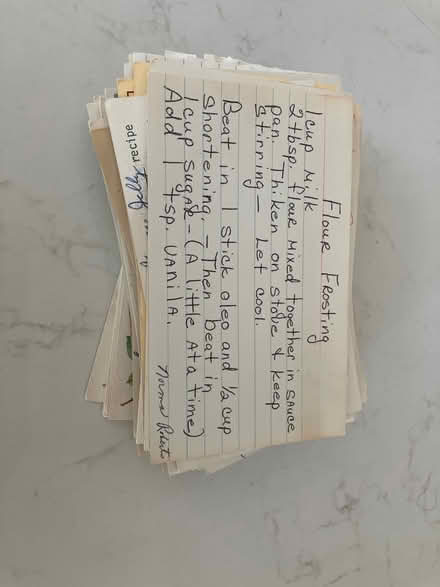 Flour Frosting
1 cup Milk
2 tbsp. flour mixed together in sauce
pan. Thiken on stove & keep
stirring – Let cool.
Beat in 1 stick oleo and 1/2 cup
shortening. – Then beat in
1 cup sugar – (A little at a time)
Add 1 tsp. vanila.
Norma Roberts
recipe